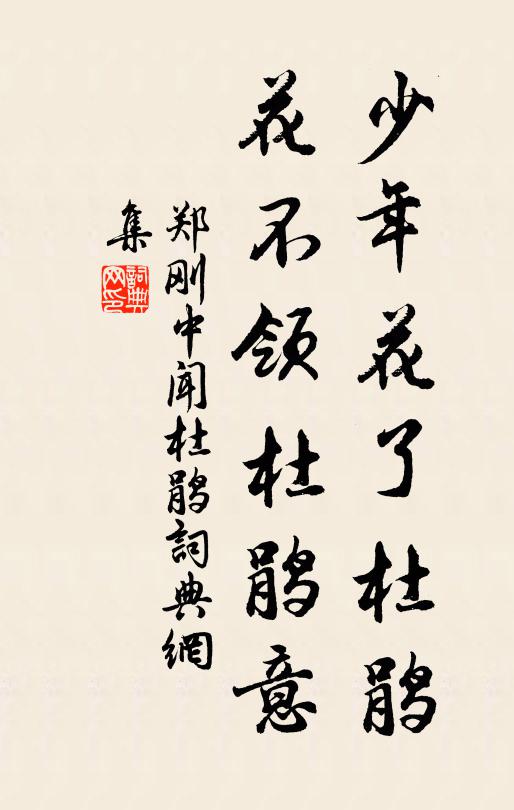 少年花了杜鹃
花不领杜鹃意
郑刚中闻杜鹃詞典網
集
詞典網印